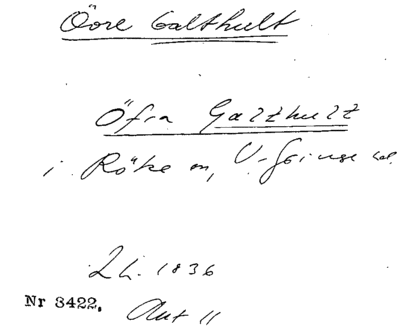 Övre Galthult
Öfra Galthult
i Röke sn, V. Göinge hd.
Lh. 1836
Nr 3422. Akt 11